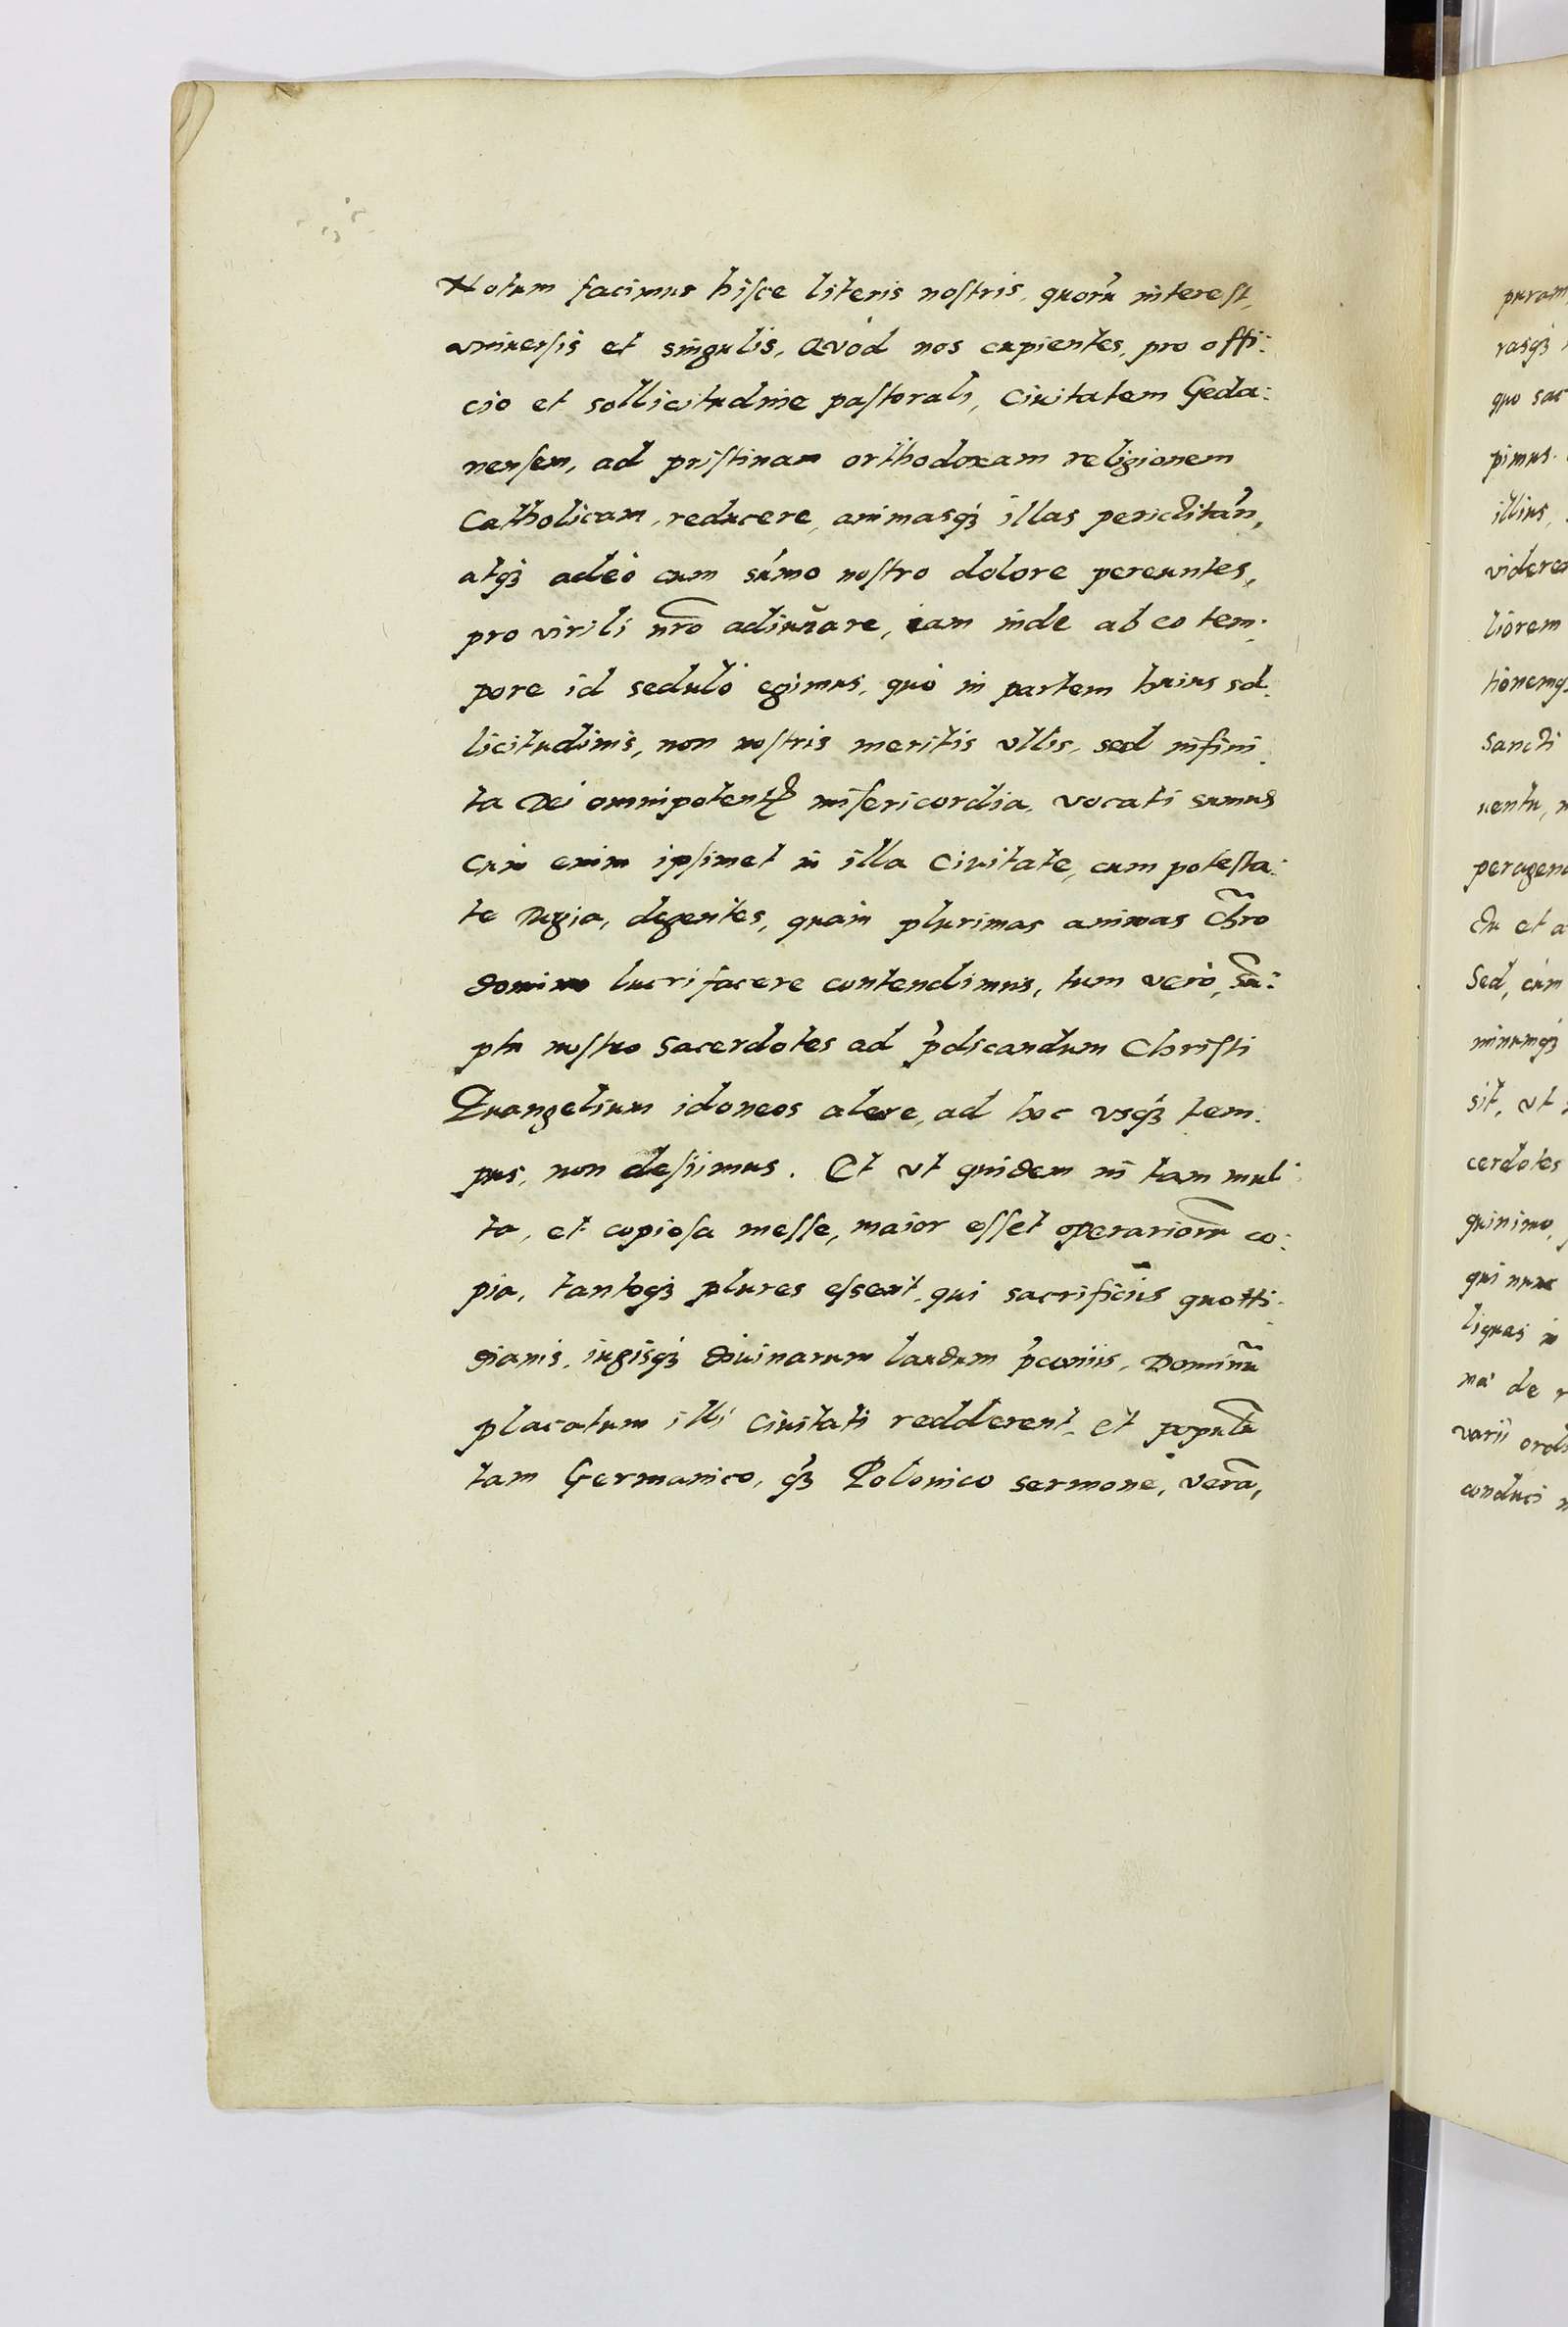 Notum facimus hisce literis nostris, quorũ interest,
vniuersis et singulis, Qvòd nos cupientes, pro offi:
cio et sollicitudine pastorali, Ciuitatem Geda:
nensem, ad pristinam orthodoxam religionem
Catholicam, reducere, animasq́ꝫ illas periclitañ,
atq́ꝫ adeò cum sũmo nostro dolore pereuntes,
pro virili nr̃o adiuuare, iam inde ab eo tem:
pore id sedulò egimus, quò in partem huius sol:
licitudinis, non nostris meritis vllis, sed infini:
ta Dei omnipotentꝭ misericordia, vocati sumus
Cum enim ipsimet in illa Ciuitate, cum potesta:
te Regia, degentes, quàm plurimas animas Chr̃o
domino lucrifacere contendimus, tum verò, sũ:
ptu nostro Sacerdotes ad p̃dicandum Christi
Euangelium idoneos alere, ad hoc vsq́ꝫ tem:
pus, non desiimus. Et vt quidem in tam mul:
ta, et copiosa messe, maior esset operariorũ co:
pia, tantoq́ꝫ plures essent, qui sacrificiis quotti:
dianis, iugisq́ꝫ diuinarum laudum p̃coniis, Dominũ
placatum illi Ciuitati redderent, et populũ
tam Germanico, q̃ꝫ Polonico sermone, verã,
puram
rasq́ꝫ
quo sac
pimus.
illius,
videre
liorem
tionemq́ꝫ
Sancti
uentu,
peragen
du et a
Sed, cùm
minumq́ꝫ
sit, vt
cerdotes
quinimo,
qui nunc
liques in
ma de
varii ordi
conduci